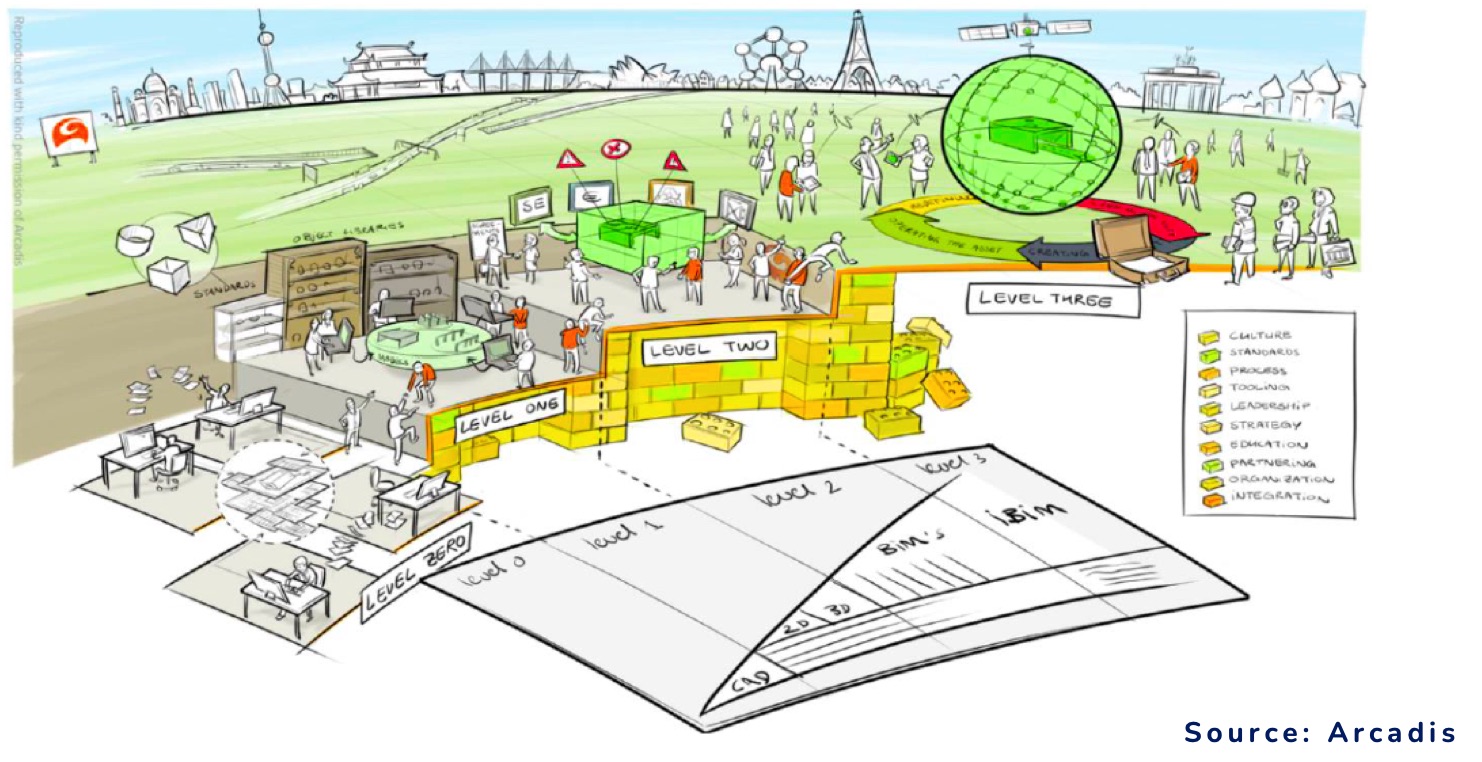 Reproduced with kind permission of Arcadis
SE
€
OBJECT LIBRARIES
STANDARDS
OPERATING THE ASSET
CREATING
LEVEL THREE
LEVEL TWO
LEVEL ONE
LEVEL ZERO
CULTURE
STANDARDS
PROCESS
TOOLING
LEADERSHIP
STRATEGY
EDUCATION
PARTNERING
ORGANIZATION
INTEGRATION
level 0
level 1
level 2
level 3
BIM's
iBIM
2D
3D
CAD
Source: Arcadis